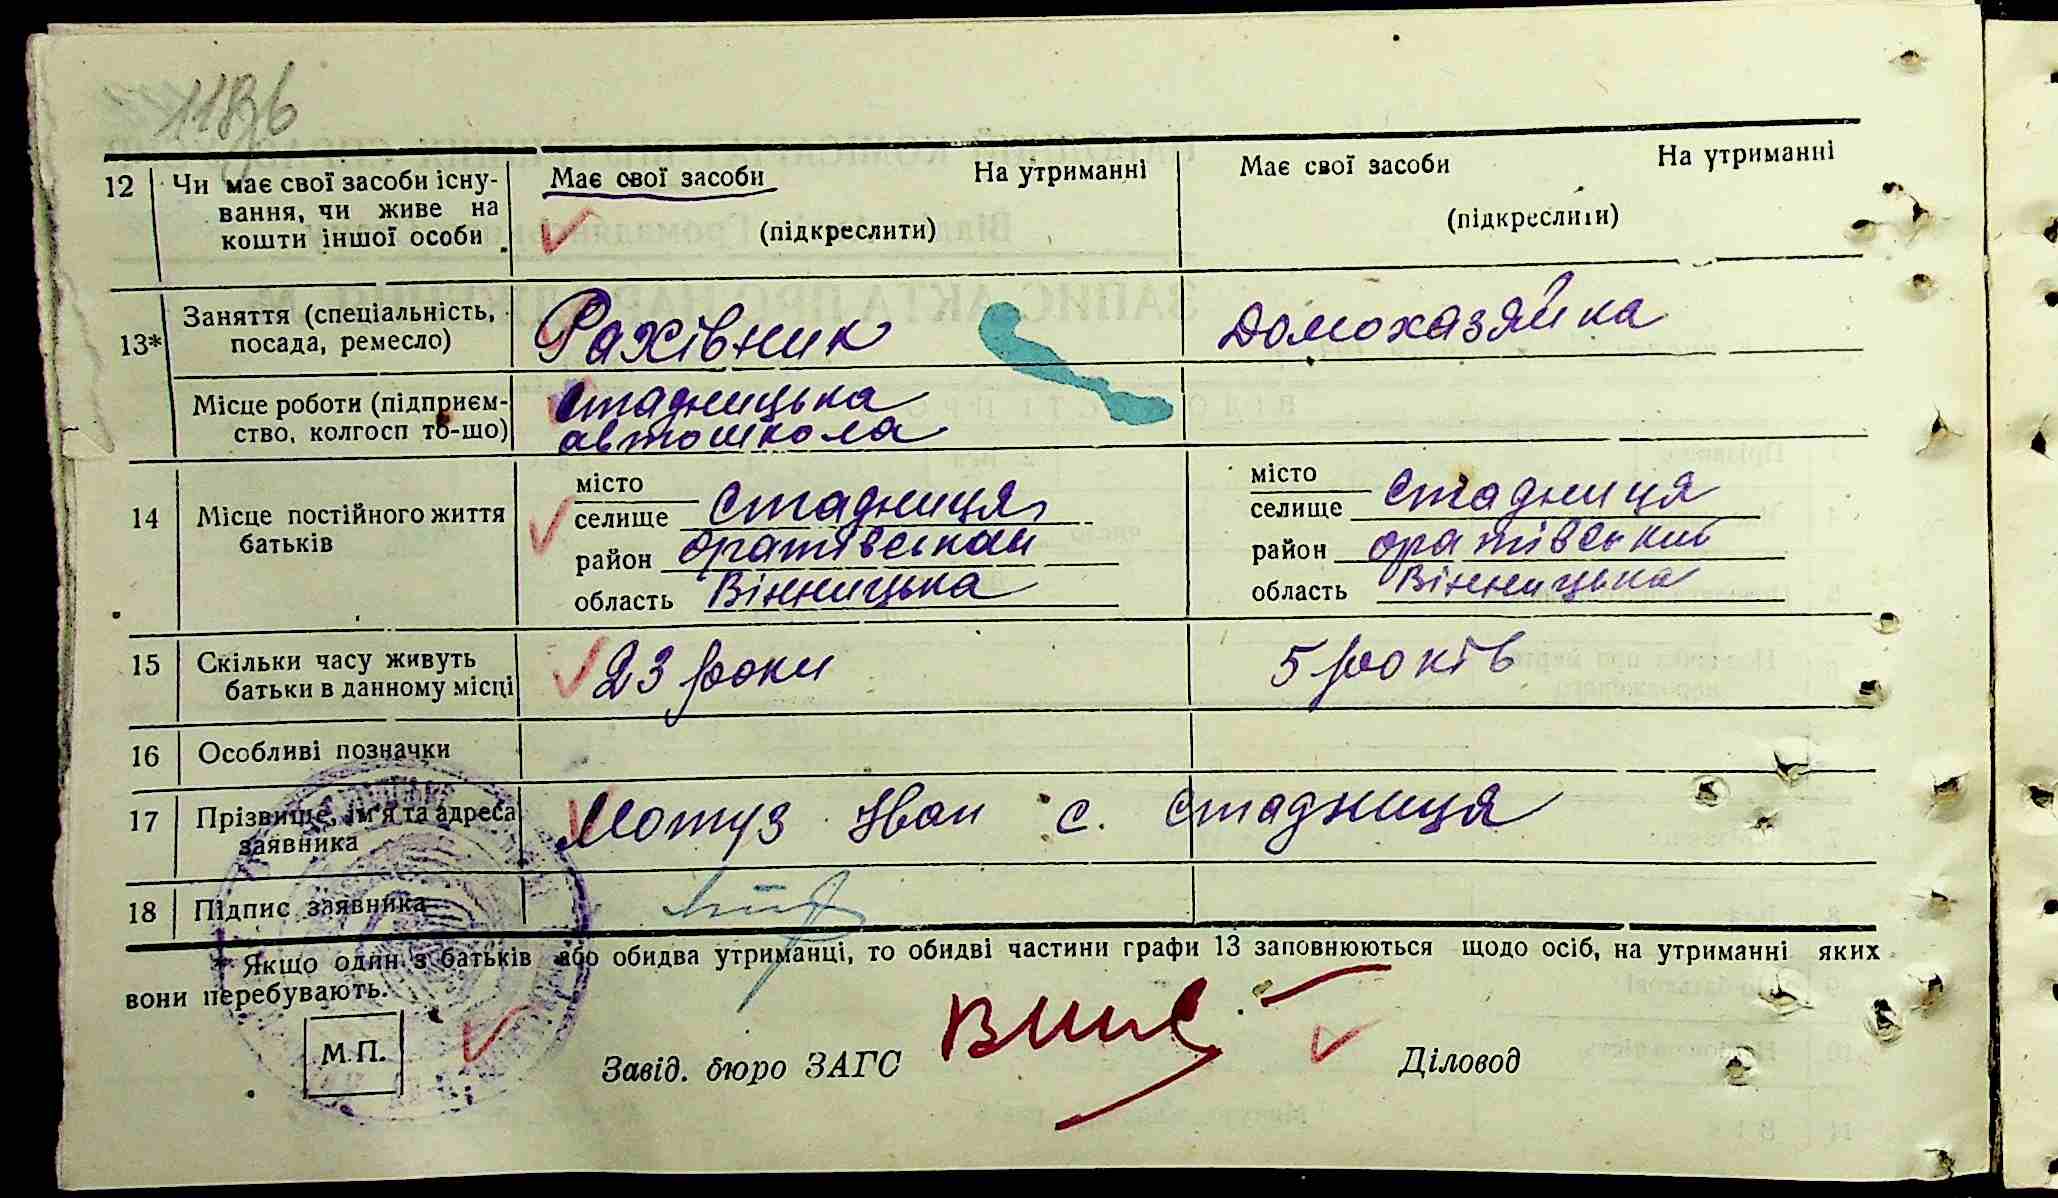 12 Чи має свої засоби існу- Має свої засоби На утриманні Має свої засоби На утриманні
вання, чи живе на (підкреслити) (підкреслити)
кошти іншої особи
13* Заняття (спеціальність, Рахівник Домохазяйка
посада, ремесло)
Місце роботи (підприєм- Стадницька
ство, колгосп то-що) автошкола
14 Місце постійного життя батьків
місто
селище Стадниця
район оратівський
область Вінницька
місто
селище Стадниця
район оратівський
область Вінницька
15 Скільки часу живуть 23 роки 5 років
батьки в данному місці
16 Особливі позначки
17 Прізвище, ім'я та адреса Мотуз Іван с. Стадниця
заявника
18 Підпис заявника
* Якщо один з батьків або обидва утриманці, то обидві частини графи 13 заповнюються щодо осіб, на утриманні яких
вони перебувають.
М.П.
Завід. бюро ЗАГС Діловод